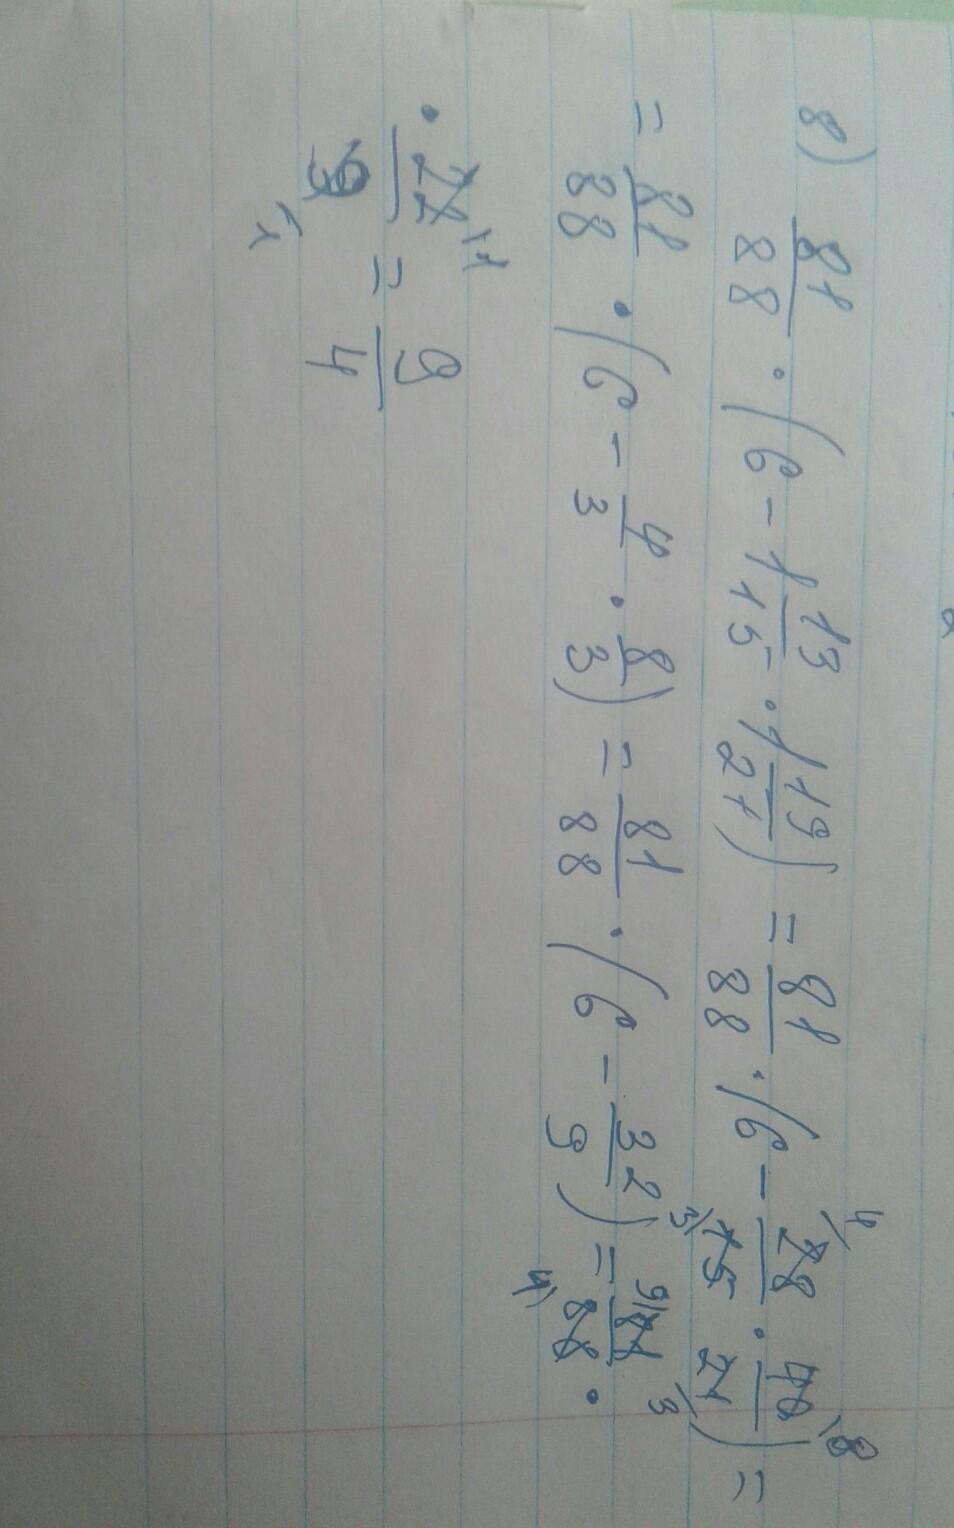 8) 81/88 · (6 - 1 13/15 · 1 19/21) = 81/88 · (6 - 28/15 · 40/21) =
= 81/88 · (6 - 4/3 · 8/3) = 81/88 · (6 - 32/9) = 81/88 ·
· 22/9 = 9/4